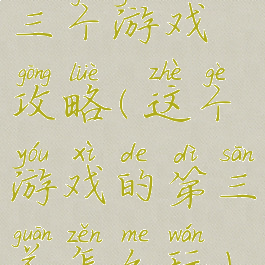 三个游戏
gōng lüè zhè gè
攻略(这个
yóu xì de dì sān
游戏的第三
guān zěn me wán
关怎么玩)